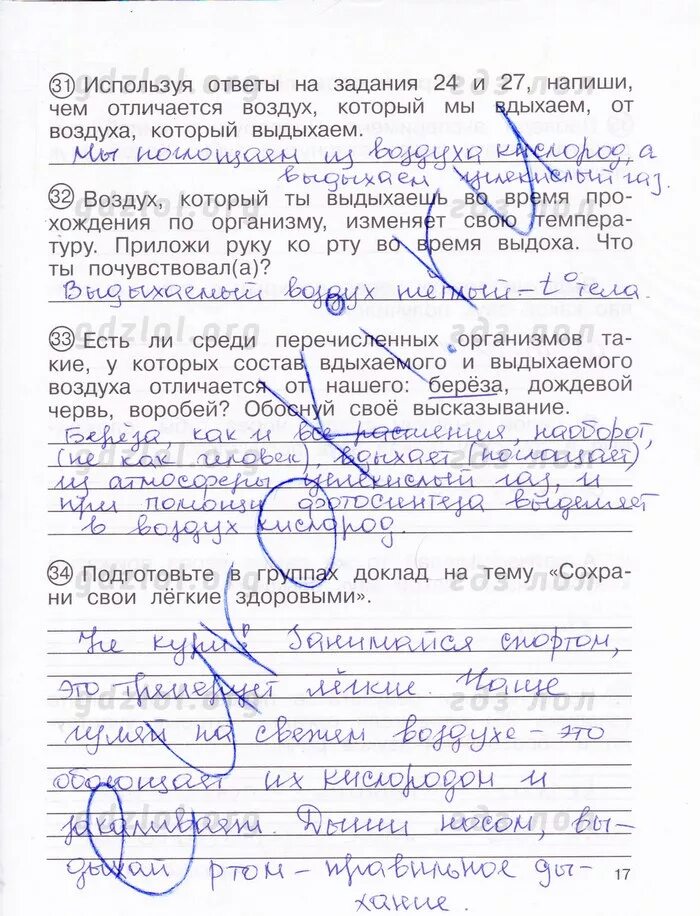 31 Используя ответы на задания 24 и 27, напиши,
чем отличается воздух, который мы вдыхаем, от
воздуха, который выдыхаем.
Мы поглощаем из воздуха кислород, а
выдыхаем углекислый газ.
32 Воздух, который ты выдыхаешь во время про-
хождения по организму, изменяет свою темпера-
туру. Приложи руку ко рту во время выдоха. Что
ты почувствовал(а)?
Выдыхаемый воздух тёплый – t° тела.
33 Есть ли среди перечисленных организмов та-
кие, у которых состав вдыхаемого и выдыхаемого
воздуха отличается от нашего: берёза, дождевой
червь, воробей? Обоснуй своё высказывание.
Берёза, как и все растения, наоборот,
(не как человек), вдыхает (поглощает)
из атмосферы углекислый газ, и
при помощи фотосинтеза выделяет
в воздух кислород.
34 Подготовьте в группах доклад на тему «Сохра-
ни свои лёгкие здоровыми».
Не кури! Занимайся спортом,
это тренирует лёгкие. Чаще
гуляй на свежем воздухе – это
обогощает их кислородом и
закаливает. Дыши носом, вы-
дыхай ртом – правильное ды-
хание.
17
gdzlol.org
гдз лол